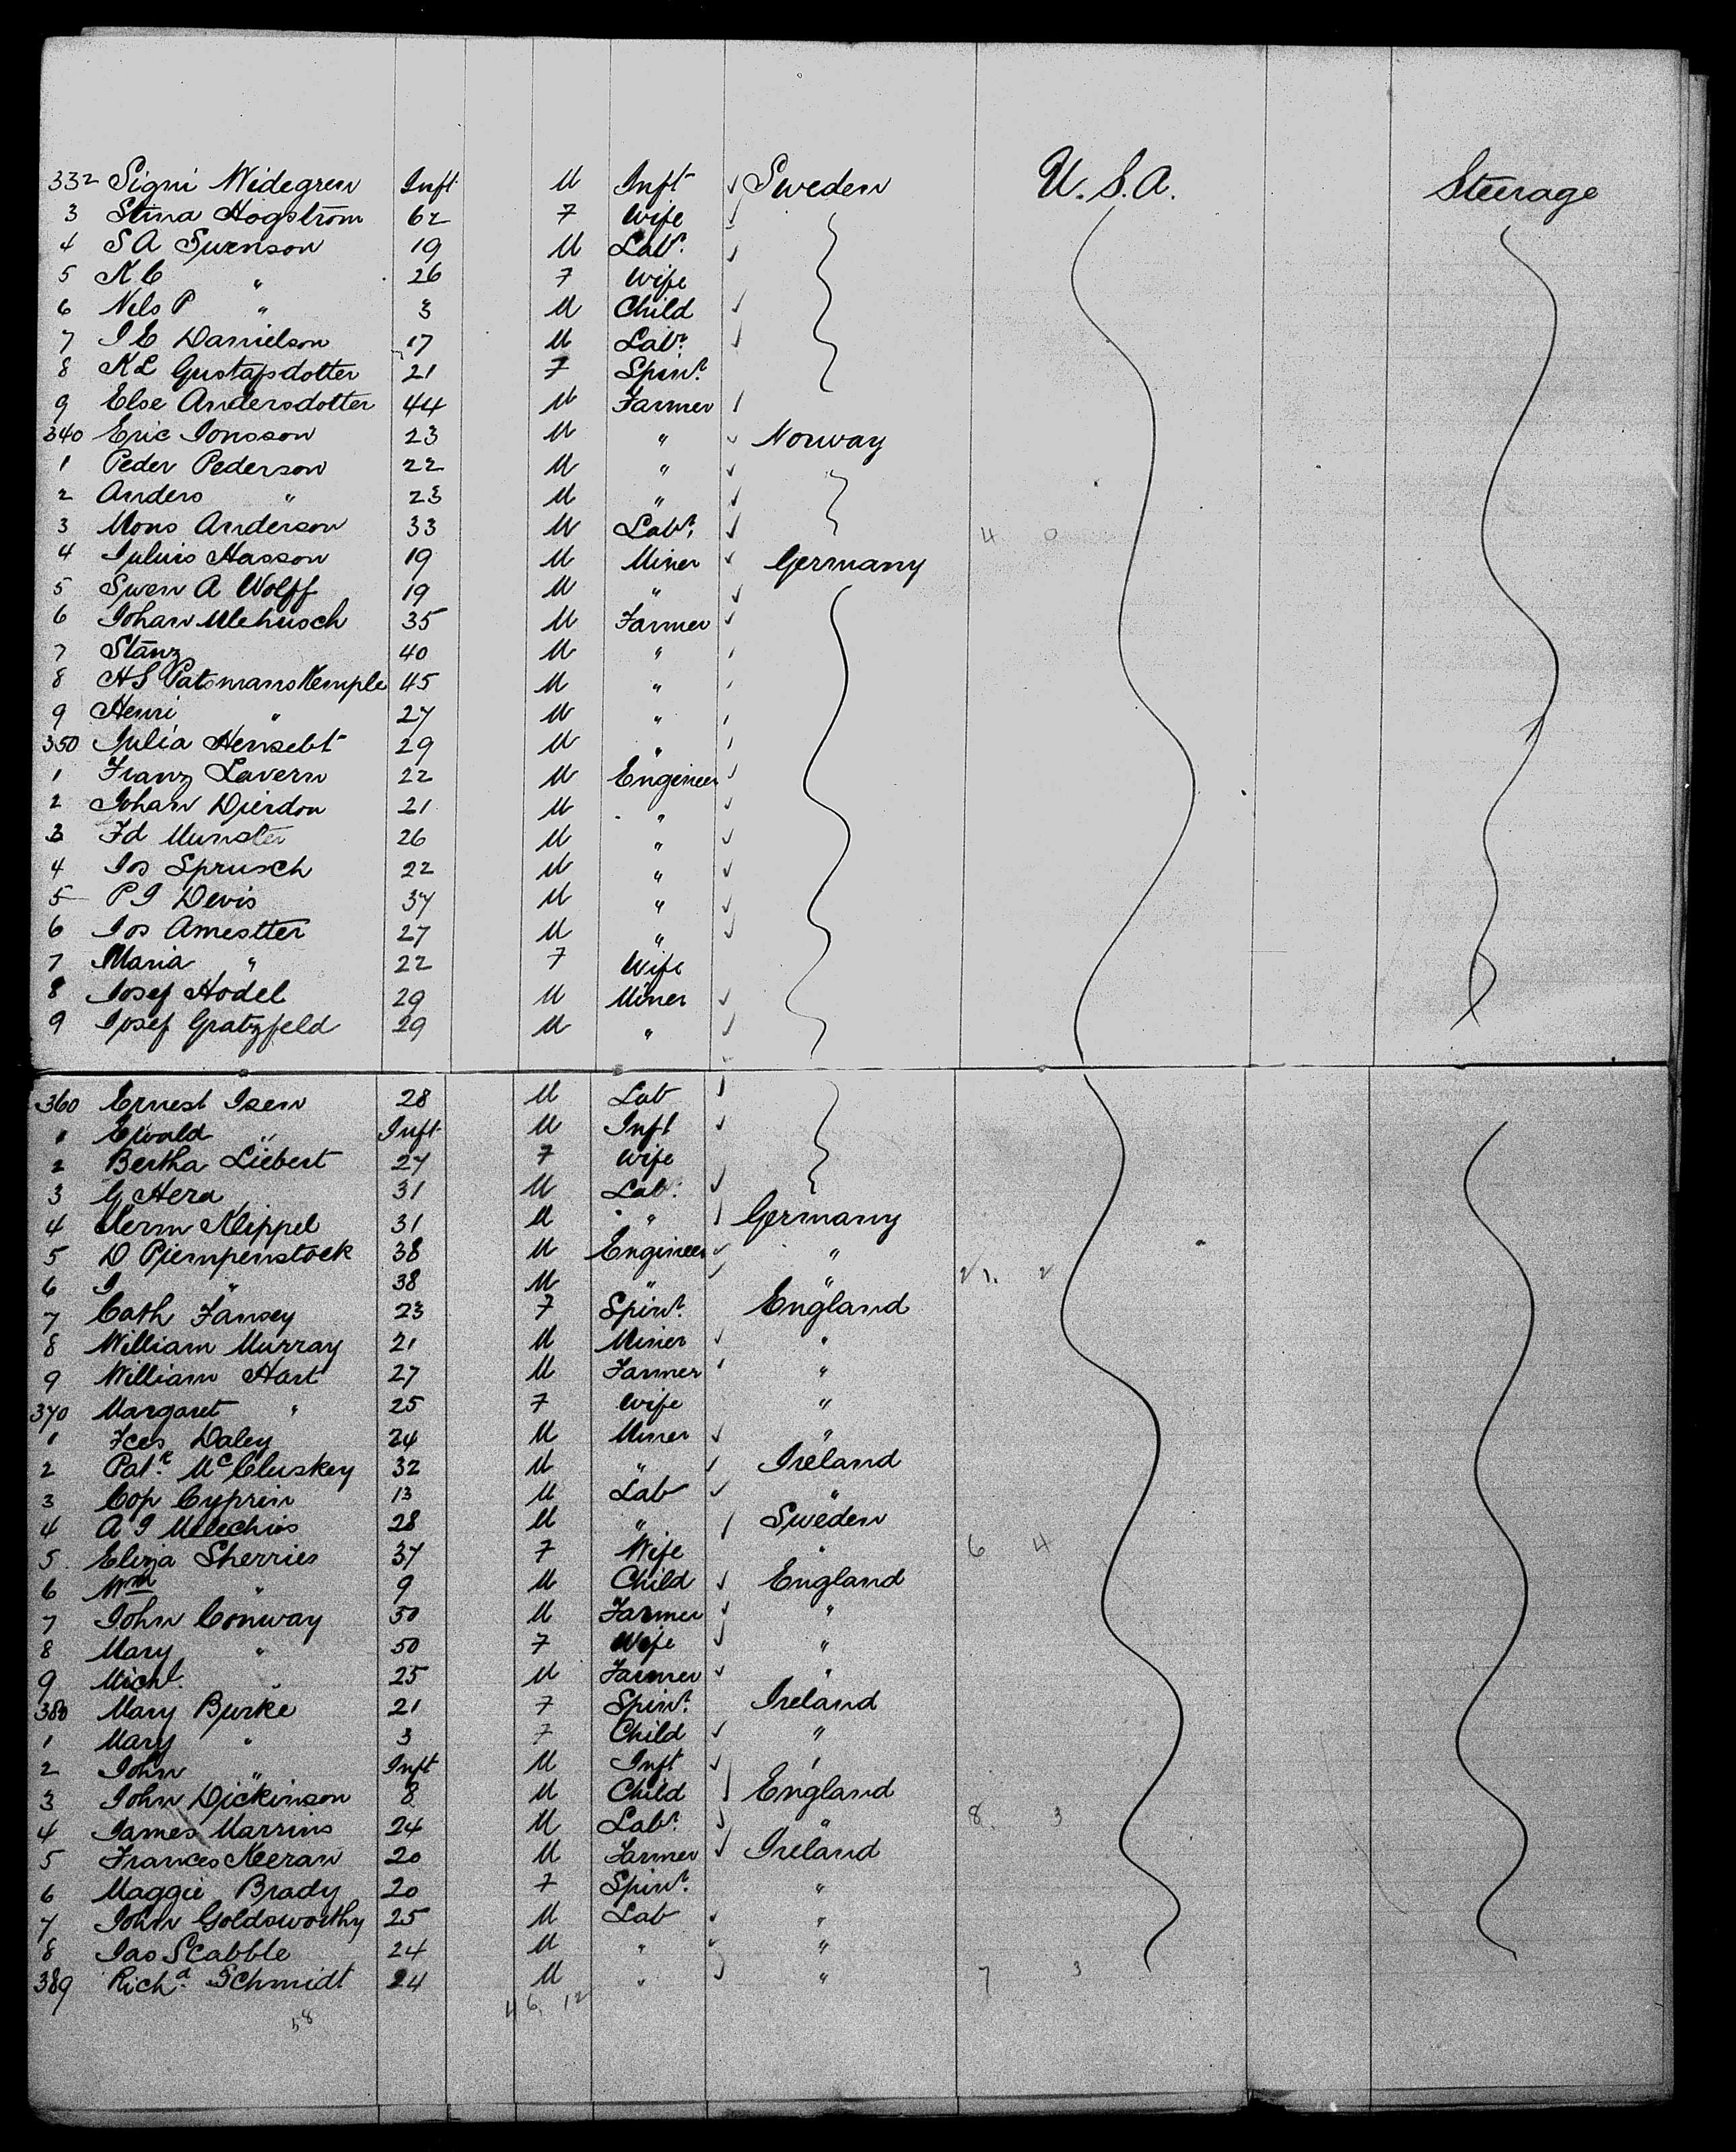 332 Signi Widegren Inft M Inft ✓ Sweden U.S.A. Steerage
3 Stina Hogstrom 62 F Wife ✓
4 S A Swenson 19 M Labr. ✓
5 K C " 26 F Wife
6 Nels P " 3 M Child ✓
7 J E Danielson 17 M Labr. ✓
8 K L Gustafsdotter 21 F Spinr.
9 Else Andersdotter 44 M Farmer
340 Eric Jonsson 23 M " ✓ Norway
1 Peder Pederson 22 M " ✓
2 Anders " 23 M " ✓
3 Mons Anderson 33 M Labr. ✓ 4 0
4 Julius Hasson 19 M Miner ✓ Germany
5 Swen A Wolff 19 M " ✓
6 Johan Mehusch 35 M Farmer ✓
7 Stanz 40 M "
8 H S Patsmans Kemple 45 M "
9 Henri " 27 M "
350 Julia Hensebt 29 M "
1 Franz Lavern 22 M Engineer ✓
2 Johan Dierdon 21 M " ✓
3 Fd Munster 26 M " ✓
4 Jos Sprusch 22 M " ✓
5 P J Devis 37 M " ✓
6 Jos Amestter 27 M " ✓
7 Maria " 22 F Wife
8 Josef Hodel 29 M Miner ✓
9 Josef Gratzfeld 29 M " ✓
360 Ernest Isen 28 M Lab ✓
1 Ewald " Inft M Inft ✓
2 Bertha Liebert 27 F Wife
3 G Hera 31 M Lab. ✓
4 Herm Klippel 31 M " Germany
5 D Piempenstock 38 M Engineer ✓ "
6 J " 38 M " ✓ " 21. 2
7 Cath Fansey 23 F Spinr. England
8 William Murray 21 M Miner ✓ "
9 William Hart 27 M Farmer "
370 Margaret " 25 F Wife "
1 Fces Daley 24 M Miner ✓ "
2 Patk. McCluskey 32 M " ✓ Ireland
3 Cop Cyprin 13 M Lab ✓ "
4 A J Melechios 28 M " Sweden
5 Eliza Sherries 37 F Wife " 6 4
6 Wm " 9 M Child ✓ England
7 John Conway 50 M Farmer ✓ "
8 Mary " 50 F Wife ✓ "
9 Michl. " 25 M Farmer ✓ "
380 Mary Burke 21 F Spinr. Ireland
1 Mary " 3 F Child ✓ "
2 John " Inft M Inft ✓ "
3 John Dickinson 8 M Child England
4 James Marrins 24 M Labr. ✓ " 8. 3
5 Frances Keeran 20 M Farmer ✓ Ireland
6 Maggie Brady 20 F Spinr. "
7 John Goldsworthy 25 M Lab ✓ "
8 Jas Scabble 24 M " ✓ "
389 Richd. Schmidt 24 M " ✓ " 7 3
58 46 12